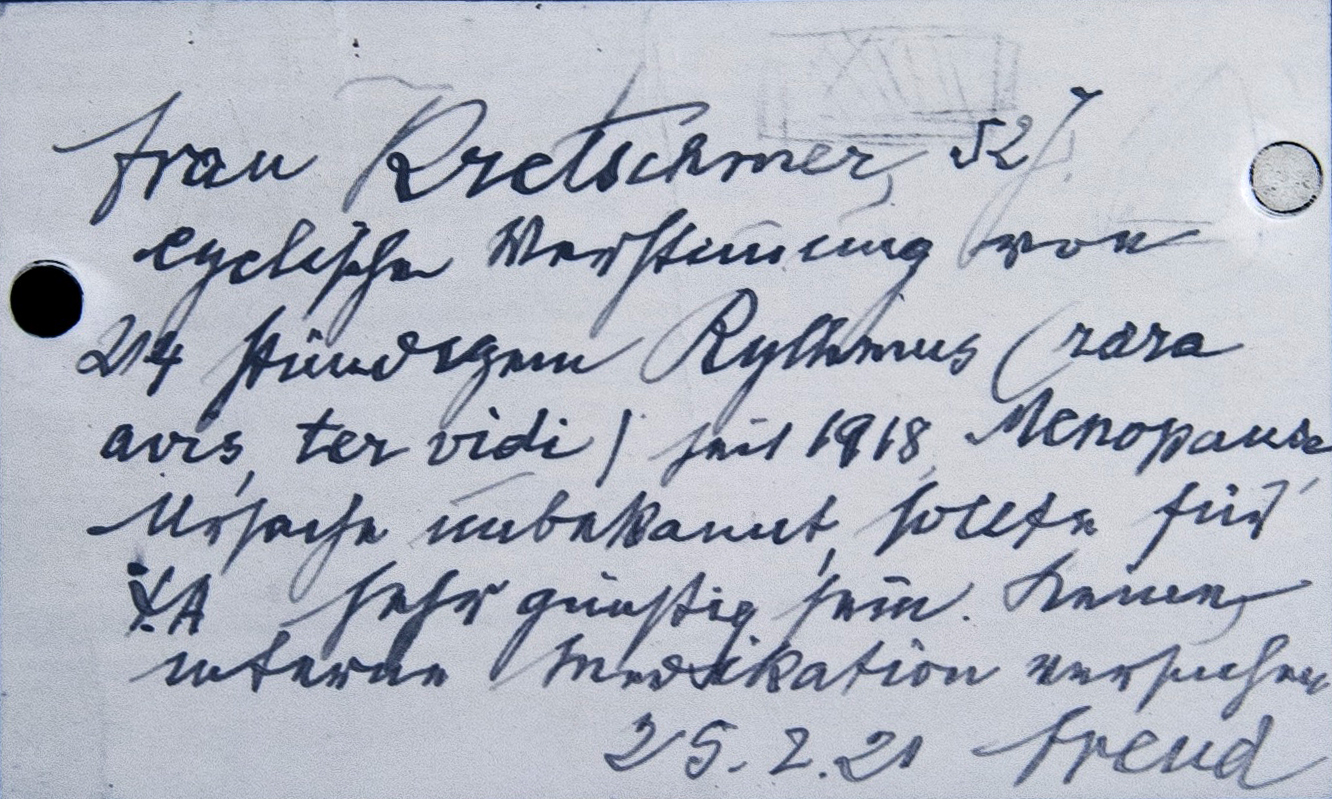 Frau Kretschmer, 52 J.
cyclische Verstimmung von
24 stündigem Rythmus (rara
avis, ter vidi) seit 1918, Menopause
Ursache unbekannt, sollte für
ΨA sehr günstig sein. Keine
interne Medikation versuchen
25.2.21 Freud